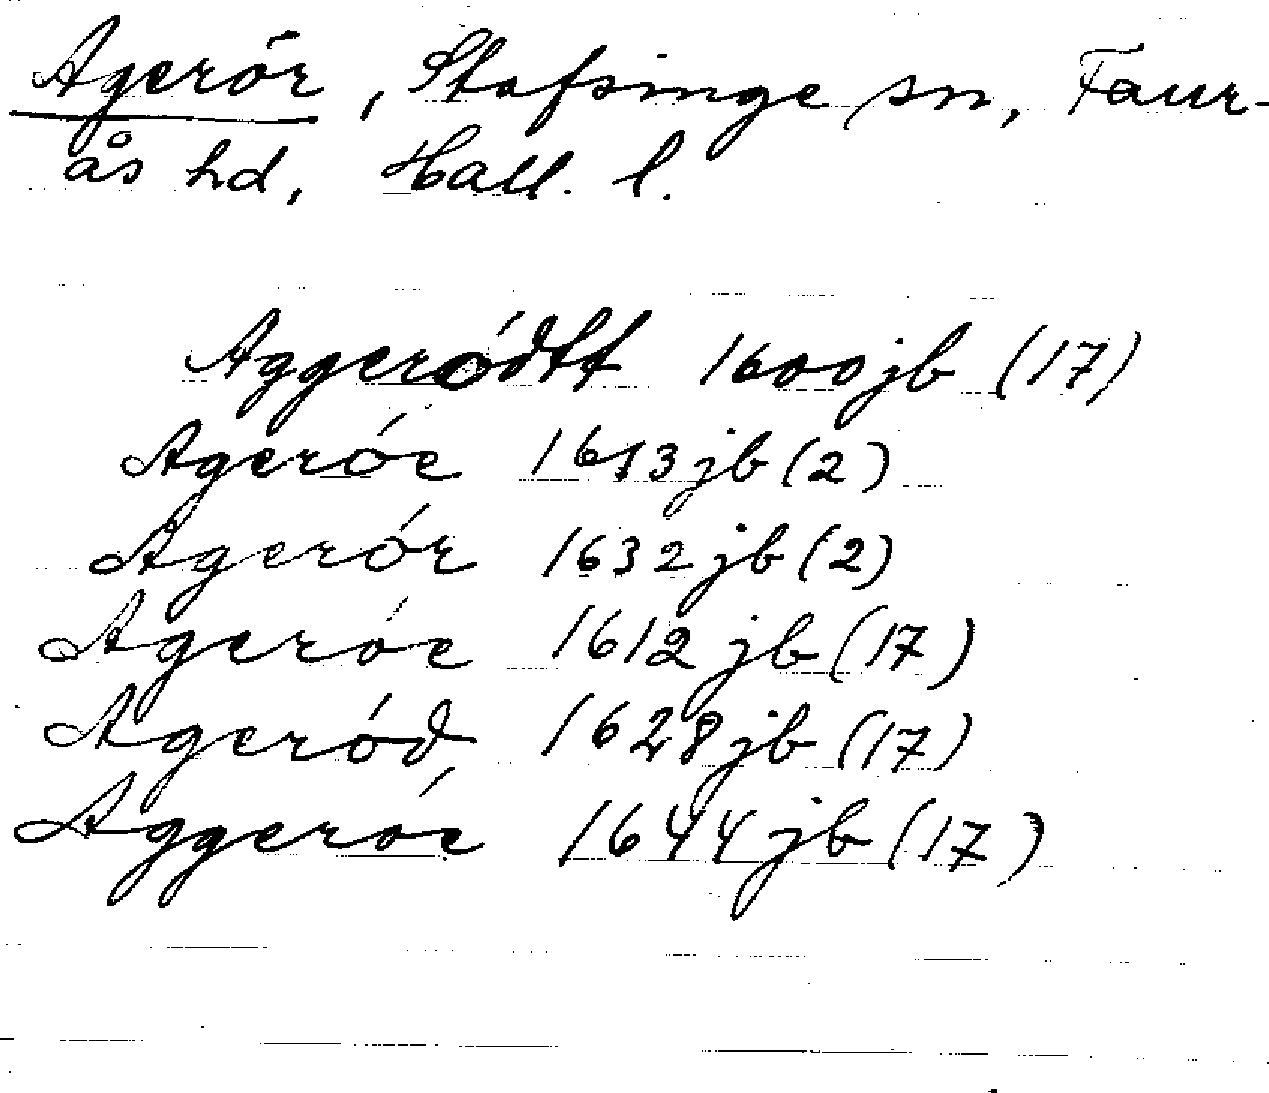 Agerör, Stafsinge sn, Faur-
ås hd, Hall. l.
Aggeródtt 1600 jb (17)
Ageróe 1613 jb (2)
Agerór 1632 jb (2)
Ageróe 1612 jb (17)
Ageród 1628 jb (17)
Aggeróe 1644 jb (17)